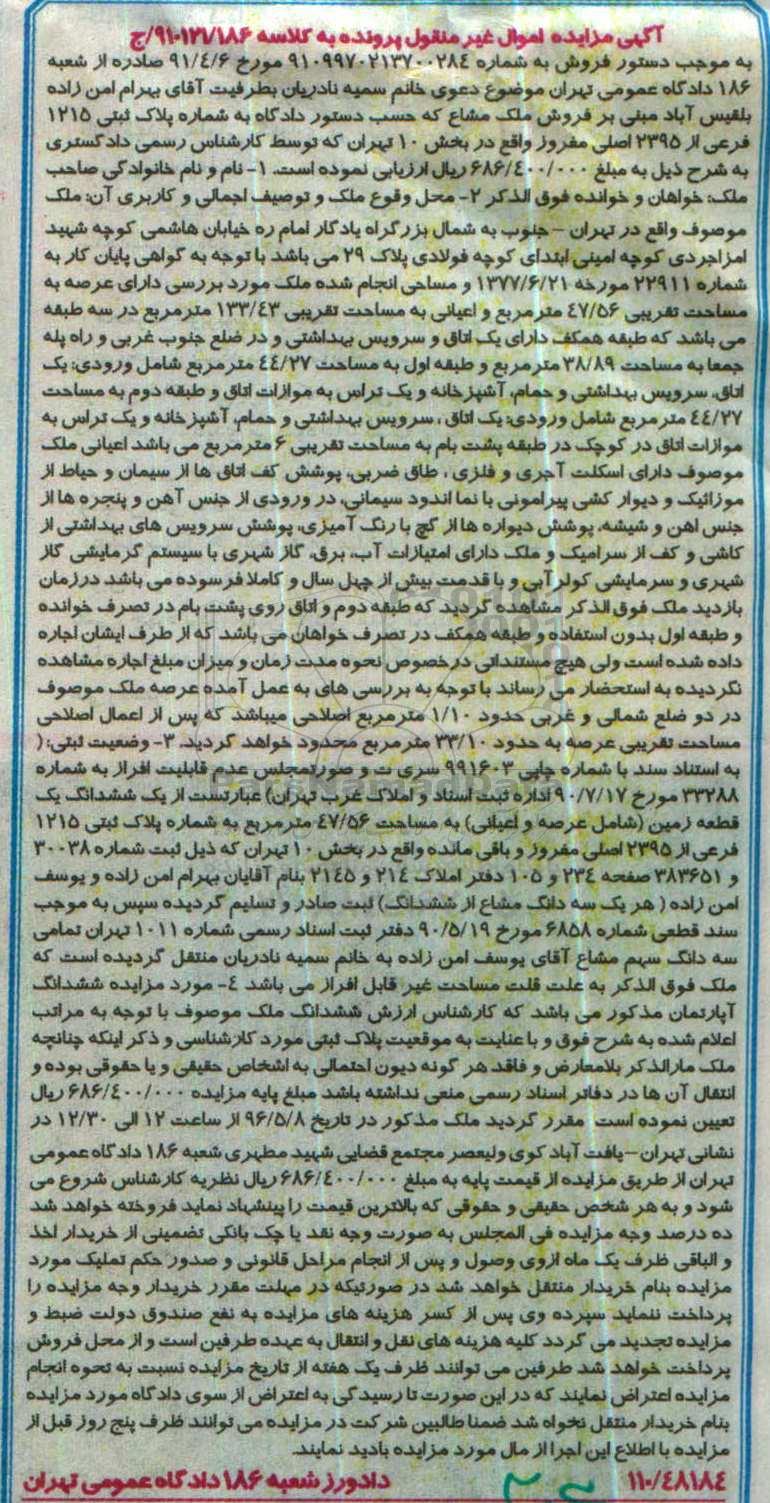 آگهی مزایده اموال غیر منقول پرونده به کلاسه ۹۱۰۱۲۱/۱۸۶/ج
به موجب دستور فروش به شماره ۹۱۰۹۹۷۰۲۱۳۷۰۰۲۸٤ مورخ ۹۱/٤/۶ صادره از شعبه
۱۸۶ دادگاه عمومی تهران موضوع دعوی خانم سمیه نادریان بطرفیت آقای بهرام امن زاده
بلقیس آباد مبنی بر فروش ملک مشاع که حسب دستور دادگاه به شماره پلاک ثبتی ۱۲۱۵
فرعی از ۲۳۹۵ اصلی مفروز واقع در بخش ۱۰ تهران که توسط کارشناس رسمی دادگستری
به شرح ذیل به مبلغ ۶۸۶/٤۰۰/۰۰۰ ریال ارزیابی نموده است. ۱- نام و نام خانوادگی صاحب
ملک: خواهان و خوانده فوق الذکر ۲- محل وقوع ملک و توصیف اجمالی و کاربری آن: ملک
موصوف واقع در تهران –جنوب به شمال بزرگراه یادگار امام ره خیابان هاشمی کوچه شهید
امزاجردی کوچه امینی ابتدای کوچه فولادی پلاک ۲۹ می باشد با توجه به گواهی پایان کار به
شماره ۲۲۹۱۱ مورخه ۱۳۷۷/۶/۲۱ و مساحی انجام شده ملک مورد بررسی دارای عرصه به
مساحت تقریبی ٤۷/۵۶ مترمربع و اعیانی به مساحت تقریبی ۱۳۳/٤۳ مترمربع در سه طبقه
می باشد که طبقه همکف دارای یک اتاق و سرویس بهداشتی و در ضلع جنوب غربی و راه پله
جمعا به مساحت ۳۸/۸۹ مترمربع و طبقه اول به مساحت ٤٤/۲۷ مترمربع شامل ورودی: یک
اتاق، سرویس بهداشتی و حمام، آشپزخانه و یک تراس به موازات اتاق و طبقه دوم به مساحت
٤٤/۲۷ مترمربع شامل ورودی: یک اتاق ، سرویس بهداشتی و حمام، آشپزخانه و یک تراس به
موازات اتاق در کوچک در طبقه پشت بام به مساحت تقریبی ۶ مترمربع می باشد اعیانی ملک
موصوف دارای اسکلت آجری و فلزی ، طاق ضربی، پوشش کف اتاق ها از سیمان و حیاط از
موزائیک و دیوار کشی پیرامونی با نما اندود سیمانی، در ورودی از جنس آهن و پنجره ها از
جنس اهن و شیشه، پوشش دیواره ها از گچ با رنگ آمیزی، پوشش سرویس های بهداشتی از
کاشی و کف از سرامیک و ملک دارای امتیازات آب، برق، گاز شهری با سیستم گرمایشی گاز
شهری و سرمایشی کولر آبی و با قدمت بیش از چهل سال و کاملا فرسوده می باشد درزمان
بازدید ملک فوق الذکر مشاهده گردید که طبقه دوم و اتاق روی پشت بام در تصرف خوانده
و طبقه اول بدون استفاده و طبقه همکف در تصرف خواهان می باشد که از طرف ایشان اجاره
داده شده است ولی هیچ مستنداتی درخصوص نحوه مدت زمان و میزان مبلغ اجاره مشاهده
نگردیده به استحضار می رساند با توجه به بررسی های به عمل آمده عرصه ملک موصوف
در دو ضلع شمالی و غربی حدود ۱/۱۰ مترمربع اصلاحی میباشد که پس از اعمال اصلاحی
مساحت تقریبی عرصه به حدود ۳۳/۱۰ مترمربع محدود خواهد گردید. ۳- وضعیت ثبتی:(
به استناد سند با شماره چاپی ۹۹۱۶۰۳ سری ت و صورتمجلس عدم قابلیت افراز به شماره
۳۳۲۸۸ مورخ ۹۰/۷/۱۷ اداره ثبت اسناد و املاک غرب تهران) عبارتست از یک ششدانگ یک
قطعه زمین (شامل عرصه و اعیانی) به مساحت ٤۷/۵۶ مترمربع به شماره پلاک ثبتی ۱۲۱۵
فرعی از ۲۳۹۵ اصلی مفروز و باقی مانده واقع در بخش ۱۰ تهران که ذیل ثبت شماره ۳۰۰۳۸
و ۳۸۳۶۵۱ صفحه ۲۳٤ و ۱۰۵ دفتر املاک ۲۱٤ و ۲۱٤۵ بنام آقایان بهرام امن زاده و یوسف
امن زاده ( هر یک سه دانگ مشاع از ششدانگ) ثبت صادر و تسلیم گردیده سپس به موجب
سند قطعی شماره ۶۸۵۸ مورخ ۹۰/۵/۱۹ دفتر ثبت اسناد رسمی شماره ۱۰۱۱ تهران تمامی
سه دانگ سهم مشاع آقای یوسف امن زاده به خانم سمیه نادریان منتقل گردیده است که
ملک فوق الذکر به علت قلت مساحت غیر قابل افراز می باشد ٤- مورد مزایده ششدانگ
آپارتمان مذکور می باشد که کارشناس ارزش ششدانگ ملک موصوف با توجه به مراتب
اعلام شده به شرح فوق و با عنایت به موقعیت پلاک ثبتی مورد کارشناسی و ذکر اینکه چنانچه
ملک مارالذکر بلامعارض و فاقد هر گونه دیون احتمالی به اشخاص حقیقی و یا حقوقی بوده و
انتقال آن ها در دفاتر اسناد رسمی منعی نداشته باشد مبلغ پایه مزایده ۶۸۶/٤۰۰/۰۰۰ ریال
تعیین نموده است مقرر گردید ملک مذکور در تاریخ ۹۶/۵/۸ از ساعت ۱۲ الی ۱۲/۳۰ در
نشانی تهران –یافت آباد کوی ولیعصر مجتمع قضایی شهید مطهری شعبه ۱۸۶ دادگاه عمومی
تهران از طریق مزایده از قیمت پایه به مبلغ ۶۸۶/٤۰۰/۰۰۰ ریال نظریه کارشناس شروع می
شود و به هر شخص حقیقی و حقوقی که بالاترین قیمت را پیشنهاد نماید فروخته خواهد شد
ده درصد وجه مزایده فی المجلس به صورت وجه نقد یا چک بانکی تضمینی از خریدار اخذ
و الباقی ظرف یک ماه ازوی وصول و پس از انجام مراحل قانونی و صدور حکم تملیک مورد
مزایده بنام خریدار منتقل خواهد شد در صورتیکه در مهلت مقرر خریدار وجه مزایده را
پرداخت ننماید سپرده وی پس از کسر هزینه های مزایده به نفع صندوق دولت ضبط و
مزایده تجدید می گردد کلیه هزینه های نقل و انتقال به عهده طرفین است و از محل فروش
پرداخت خواهد شد طرفین می توانند ظرف یک هفته از تاریخ مزایده نسبت به نحوه انجام
مزایده اعتراض نمایند که در این صورت تا رسیدگی به اعتراض از سوی دادگاه مورد مزایده
بنام خریدار منتقل نخواه شد ضمنا طالبین شرکت در مزایده می توانند ظرف پنج روز قبل از
مزایده با اطلاع این اجرا از مال مورد مزایده بادید نمایند.
۱۱۰/٤۸۱۸٤ دادورز شعبه ۱۸۶ دادگاه عمومی تهران